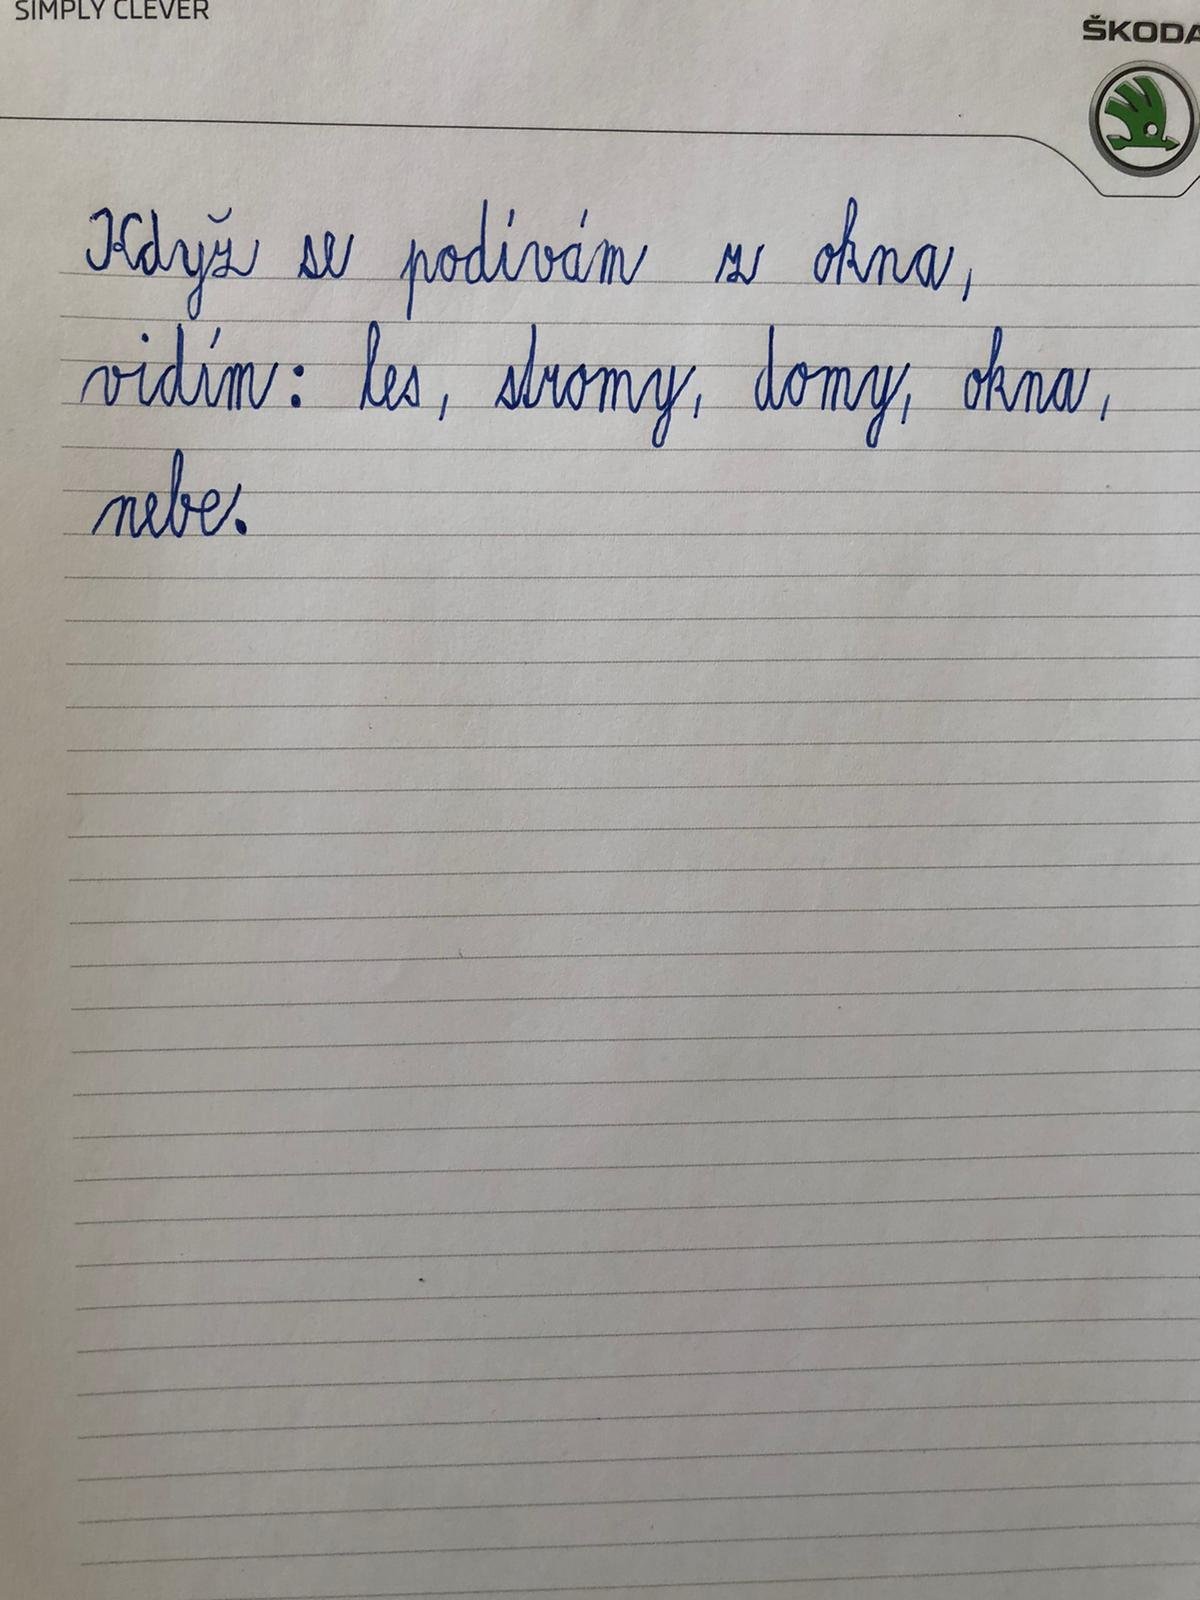 SIMPLY CLEVER
ŠKODA
Když se podívám z okna,
vidím: les, stromy, domy, okna,
nebe.